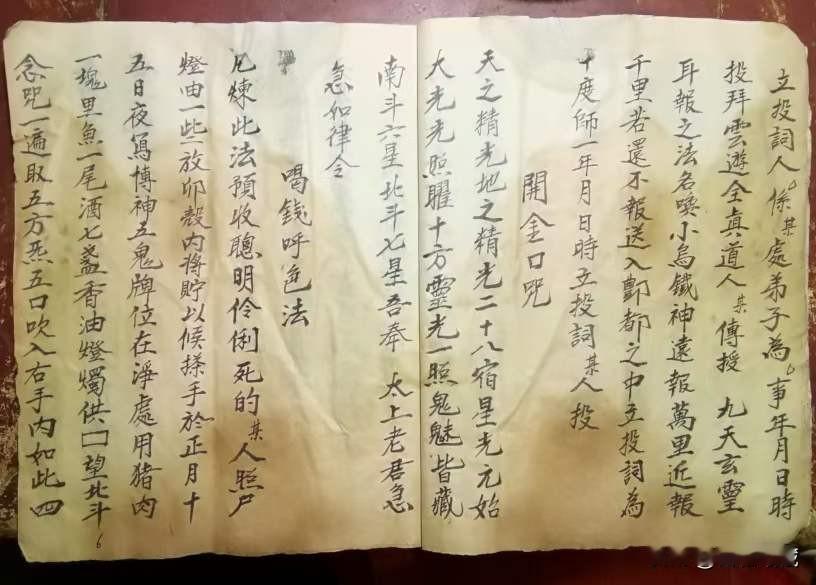 立投詞人係某處弟子為事年月日時
投拜雲遊全真道人某傳授 九天玄靈
耳報之法名喚小烏鐵神遠報萬里近報
千里若還不報送入酆都之中立投詞為
十度師一年月日時立投詞某人投
開金口咒
天之精光地之精光二十八宿星光元始
大光光照耀十方靈光一照鬼魅皆藏
南斗六星北斗七星吾奉 太上老君急
急如律令
喝錢呼色法
凡煉此法預收聰明伶俐死的某人照尸
燈油一些放卵殼內將貯以候搽手於正月十
五日夜寫博神五鬼牌位在淨處用猪肉
一塊里魚一尾酒七盞香油燈燭供口望北斗
念咒一遍取五方炁五口吹入右手內如此四
6